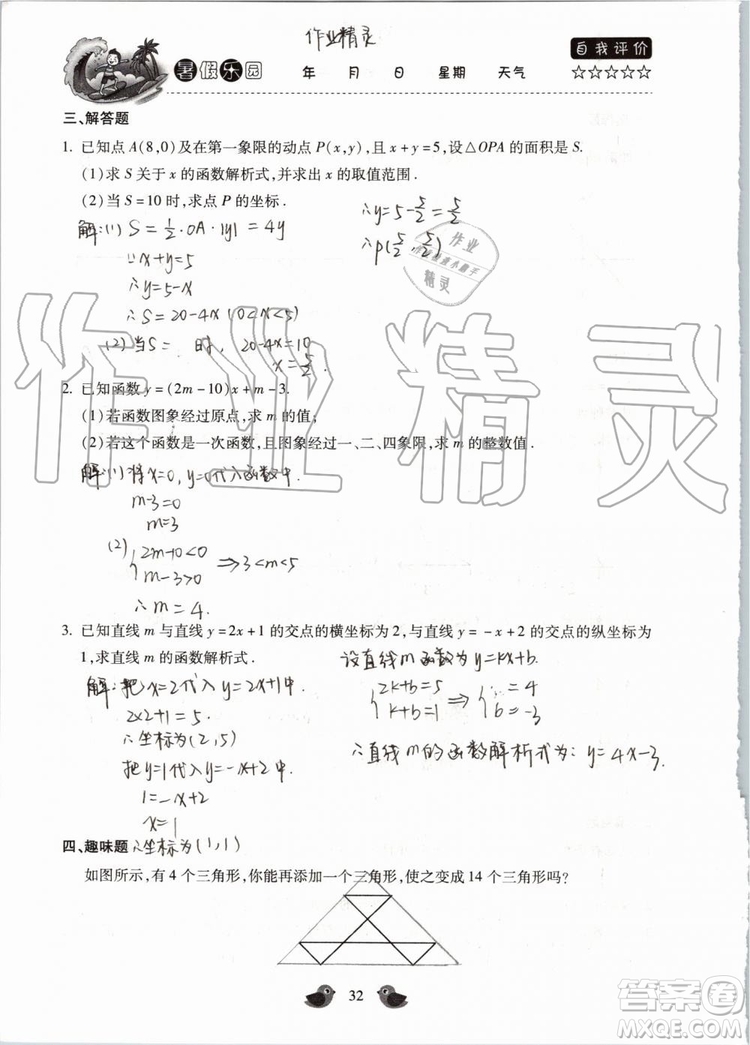 作业精灵
自我评价
暑假乐园 年 月 日 星期 天气 ☆☆☆☆☆
三、解答题
1. 已知点 A(8,0)及在第一象限的动点 P(x,y),且 x+y=5,设△OPA 的面积是 S.
(1)求 S 关于 x 的函数解析式,并求出 x 的取值范围.
(2)当 S=10 时,求点 P 的坐标.
解:(1) S=½·OA·|y|=4y
∵x+y=5
∴y=5-x
∴S=20-4x(0<x<5)
(2)当S= 时, 20-4x=10
x=5/2
∴y=5-5/2=5/2
∴P(5/2,5/2)
作业
精灵
2. 已知函数 y=(2m-10)x+m-3.
(1)若函数图象经过原点,求 m 的值;
(2)若这个函数是一次函数,且图象经过一、二、四象限,求 m 的整数值.
解:(1)将x=0,y=0代入函数中.
m-3=0
m=3
(2) {2m-10<0
m-3>0 ⇒3<m<5
∴m=4.
3. 已知直线 m 与直线 y=2x+1 的交点的横坐标为 2,与直线 y=-x+2 的交点的纵坐标为
1,求直线 m 的函数解析式.
解:把x=2代入y=2x+1中.
2×2+1=5.
∴坐标为(2,5)
把y=1代入y=-x+2中.
1=-x+2
x=1
∴坐标为(1,1)
设直线m函数y=kx+b.
{2k+b=5
k+b=1 ⇒ { =4
b=-3
∴直线m的函数解析式为:y=4x-3.
四、趣味题
如图所示,有 4 个三角形,你能再添加一个三角形,使之变成 14 个三角形吗?
32
作业精灵
答案圈
MXQE.COM